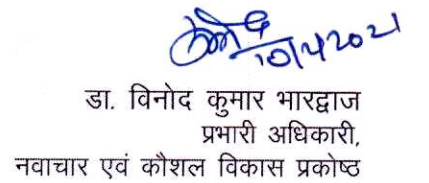 10/4/2021
डा. विनोद कुमार भारद्वाज
प्रभारी अधिकारी,
नवाचार एवं कौशल विकास प्रकोष्ठ